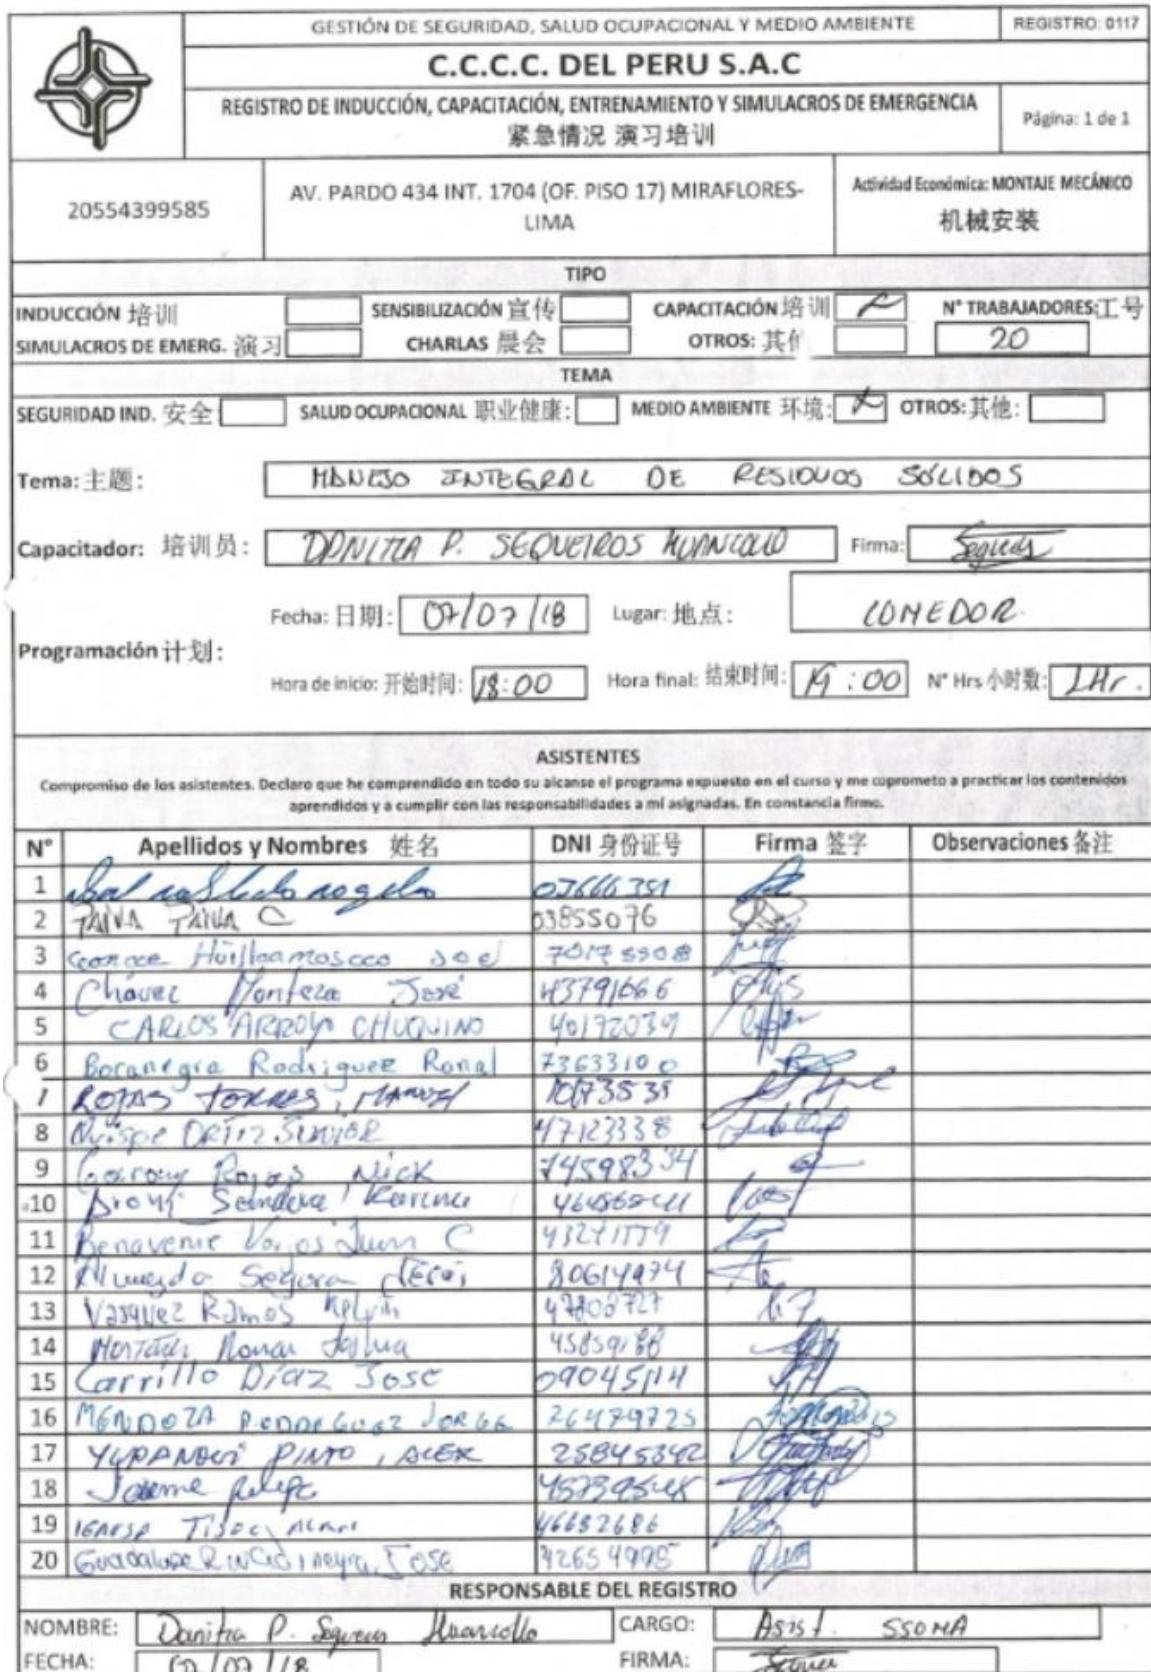 GESTIÓN DE SEGURIDAD, SALUD OCUPACIONAL Y MEDIO AMBIENTE
REGISTRO: 0117
C.C.C.C. DEL PERU S.A.C
REGISTRO DE INDUCCIÓN, CAPACITACIÓN, ENTRENAMIENTO Y SIMULACROS DE EMERGENCIA
紧急情况 演习培训
Página: 1 de 1
20554399585
AV. PARDO 434 INT. 1704 (OF. PISO 17) MIRAFLORES-
LIMA
Actividad Económica: MONTAJE MECÁNICO
机械安装
TIPO
INDUCCIÓN 培训 SENSIBILIZACIÓN 宣传 CAPACITACIÓN 培训 N° TRABAJADORES:工号
SIMULACROS DE EMERG. 演习 CHARLAS 晨会 OTROS: 其他 20
TEMA
SEGURIDAD IND. 安全 SALUD OCUPACIONAL 职业健康: MEDIO AMBIENTE 环境: X OTROS:其他:
Tema: 主题: MANEJO INTEGRAL DE RESIDUOS SÓLIDOS
Capacitador: 培训员: DANITZA P. SEQUEIROS HUANCOLLO Firma:
Fecha: 日期: 07/07/18 Lugar: 地点: COMEDOR.
Programación 计划:
Hora de inicio: 开始时间: 18:00 Hora final: 结束时间: 19:00 N° Hrs 小时数: 1Hr.
ASISTENTES
Compromiso de los asistentes. Declaro que he comprendido en todo su alcanse el programa expuesto en el curso y me coprometo a practicar los contenidos
aprendidos y a cumplir con las responsabilidades a mí asignadas. En constancia firmo.
N° Apellidos y Nombres 姓名 DNI 身份证号 Firma 签字 Observaciones 备注
1
2 TAIVA TAIVA C 03855076
3 Huillcamosco Joel
4 Chavez Monteza José 43791666
5 CARLOS ARROYO CHUQUINO 40172039
6 Bocanegra Rodriguez Ronal 73633100
7 ROJAS TORRES, MANUEL
8 Quispe ORTIZ JUNIOR 47123338
9 Rojas Nick 74598334
10 Karina
11 Benavente Juan C
12 Segura 80614974
13 Vasquez Ramos Kelvin
14
15 Carrillo Díaz Jose
16 MENDOZA RODRIGUEZ JORGE 26479725
17 YUPANQUI PINTO, ALEX 25845342
18 Jaeme
19 46682686
20 Guadalupe JOSE
RESPONSABLE DEL REGISTRO
NOMBRE: Danitza P. Huancollo CARGO: Asist. SSOMA
FECHA: 07/07/18 FIRMA: